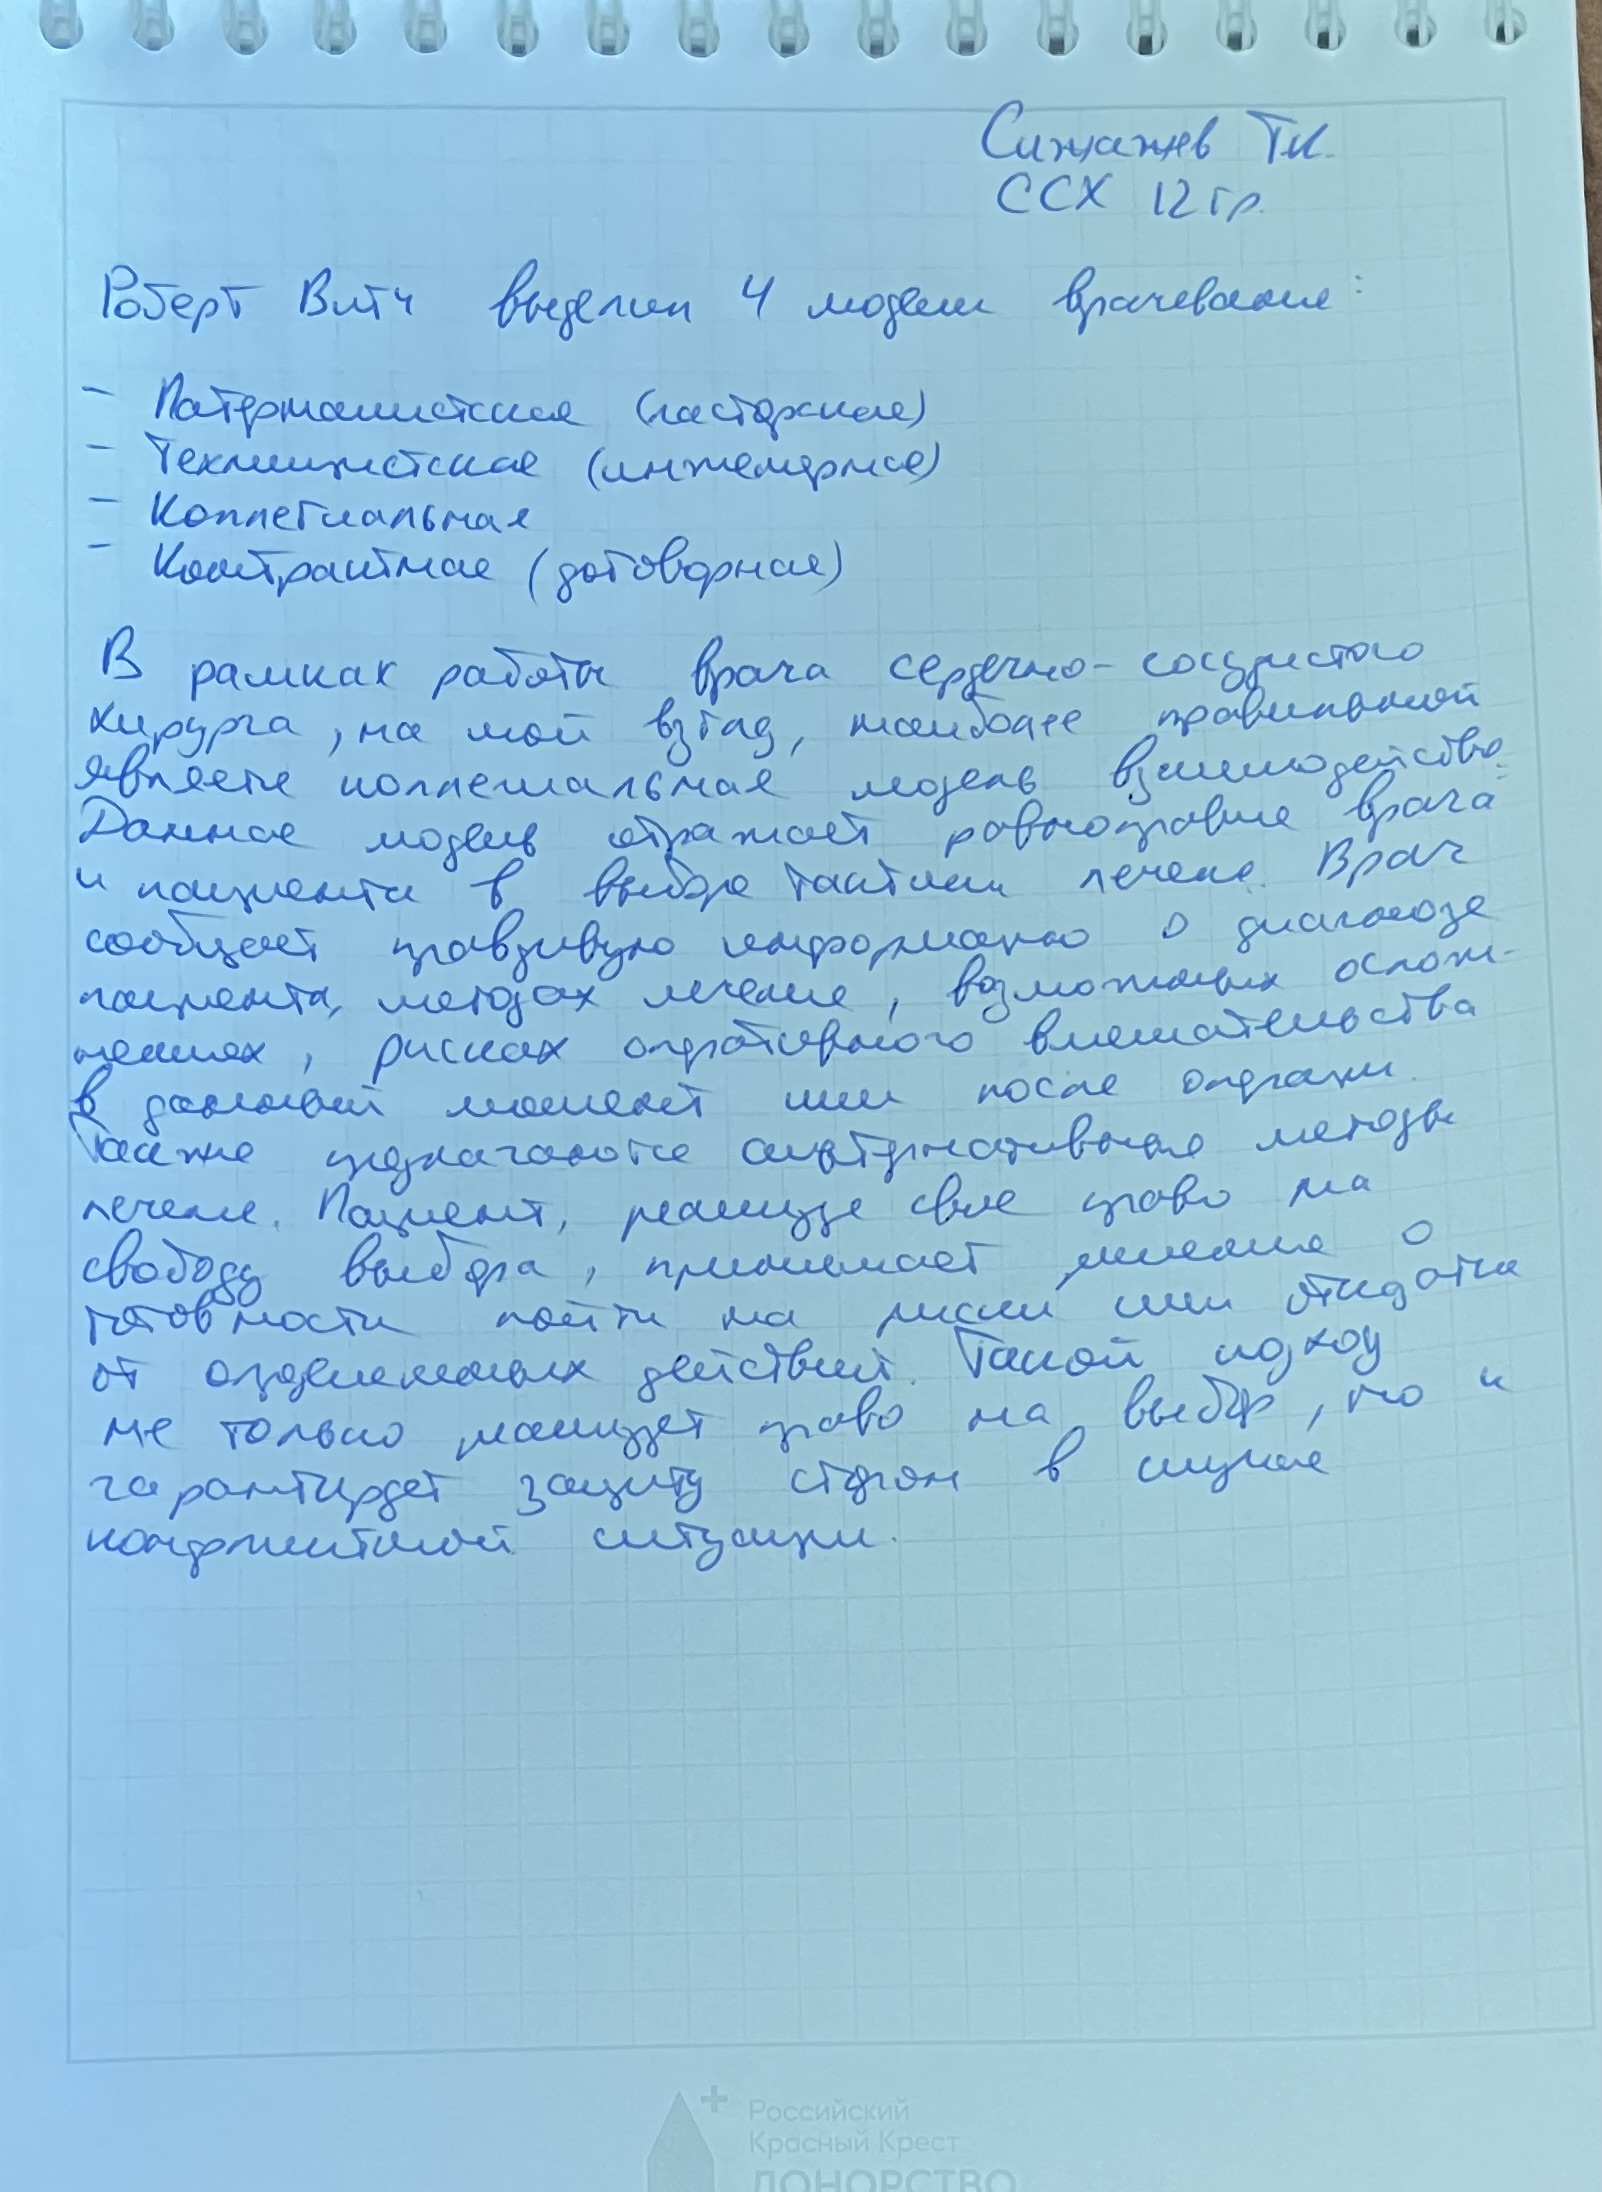 Сижажев Т.К.
ССХ 12 гр.
Роберт Витч выделил 4 модели врачевания:
- Патерналистская (пасторская)
- Техницистская (инженерная)
- Коллегиальная
- Контрактная (договорная)
В рамках работы врача сердечно-сосудистого
хирурга, на мой взгляд, наиболее правильной
является коллегиальная модель взаимодействия.
Данная модель отражает равноправие врача
и пациента в выборе тактики лечения. Врач
сообщает правдивую информацию о диагнозе
пациента, методах лечения, возможных ослож-
нениях, рисках оперативного вмешательства
в данный момент или после операции.
Также предлагаются альтернативные методы
лечения. Пациент, реализуя свое право на
свободу выбора, принимает решение о
готовности пойти на риски или отказаться
от определенных действий. Такой подход
не только реализует право на выбор, но и
гарантирует защиту сторон в случае
конфликтной ситуации.
Российский
Красный Крест
ДОНОРСТВО